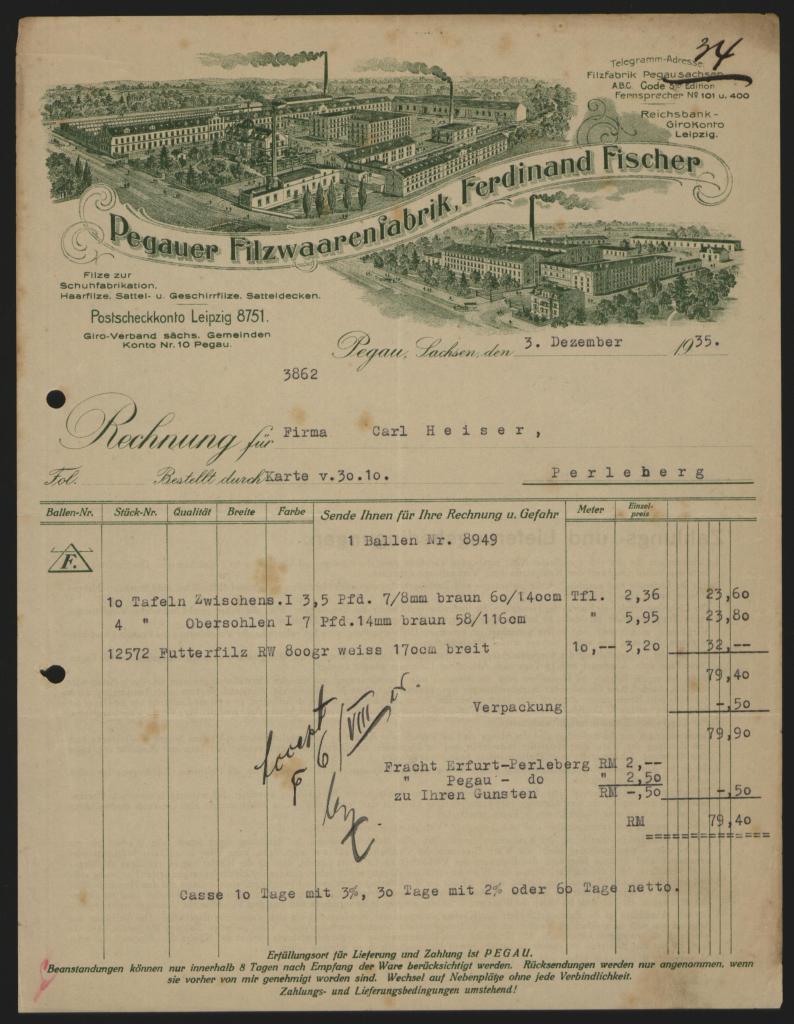 34
Telegramm-Adresse:
Filzfabrik Pegausachsen
A.B.C. Code 5te Edition
Fernsprecher No 101 u. 400
Reichsbank-
Girokonto
Leipzig.
Pegauer Filzwaarenfabrik, Ferdinand Fischer
Filze zur
Schuhfabrikation,
Haarfilze, Sattel- u. Geschirrfilze, Satteldecken.
Postscheckkonto Leipzig 8751.
Giro-Verband sächs. Gemeinden
Konto Nr. 10 Pegau.
Pegau, Sachsen, den 3. Dezember 1935.
3862
Rechnung für Firma Carl Heiser,
Fol. Bestellt durch Karte v.30.10. Perleberg
Ballen-Nr. Stück-Nr. Qualität Breite Farbe Sende Ihnen für Ihre Rechnung u. Gefahr Meter Einzel-preis
1 Ballen Nr. 8949
F.
10 Tafeln Zwischens.I 3,5 Pfd. 7/8mm braun 60/140cm Tfl. 2,36 23,60
4 " Obersohlen I 7 Pfd.14mm braun 58/116cm " 5,95 23,80
12572 Futterfilz RW 800gr weiss 170cm breit 10,-- 3,20 32,--
79,40
Verpackung -,50
79,90
Fracht Erfurt-Perleberg RM 2,--
" Pegau - do " 2,50
zu Ihren Gunsten RM -,50 -,50
RM 79,40
6/VIII
Casse 10 Tage mit 3%, 30 Tage mit 2% oder 60 Tage netto.
Erfüllungsort für Lieferung und Zahlung ist PEGAU.
Beanstandungen können nur innerhalb 8 Tagen nach Empfang der Ware berücksichtigt werden. Rücksendungen werden nur angenommen, wenn
sie vorher von mir genehmigt worden sind. Wechsel auf Nebenplätze ohne jede Verbindlichkeit.
Zahlungs- und Lieferungsbedingungen umstehend!